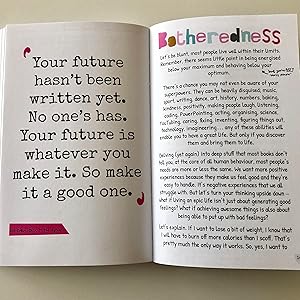 Your future
hasn't been
written yet.
No one's has.
Your future is
whatever you
make it. So make
it a good one.
Botheredness
Let's be blunt, most people live well within their limits.
Remember, there seems little point in being energised
below your maximum and behaving below your
optimum.
There's a chance you may not even be aware of your
superpowers. They can be heavily disguised; music,
sport, writing, dance, art, history, numbers, baking,
kindness, positivity, making people laugh, listening,
coding, PowerPointing, acting, organising, science,
YouTubing, caring, fixing, inventing, figuring things out,
technology, imagineering ... any of these abilities will
enable you to have a great life. But only if you discover
them and bring them to life.
Delving (yet again) into deep stuff that most books don't
tell you. At the core of all human behaviour, most people's
needs are more or less the same. We want more positive
experiences because they make us feel good and they're
easy to handle. It's negative experiences that we all
struggle with. But let's turn your thinking upside down –
what if living an epic life isn't just about generating good
feelings? What if achieving awesome things is also about
being able to put up with bad feelings?
Let's explain. If I want to lose a bit of weight, I know that
I will have to burn off more calories than I scoff. That's
pretty much the only way it works. So, yes, I want to